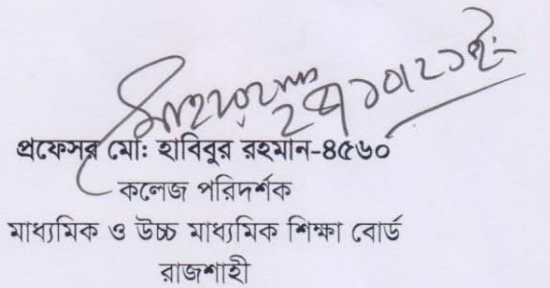 প্রফেসর মো: হাবিবুর রহমান-৪৫৬০
কলেজ পরিদর্শক
মাধ্যমিক ও উচ্চ মাধ্যমিক শিক্ষা বোর্ড
রাজশাহী